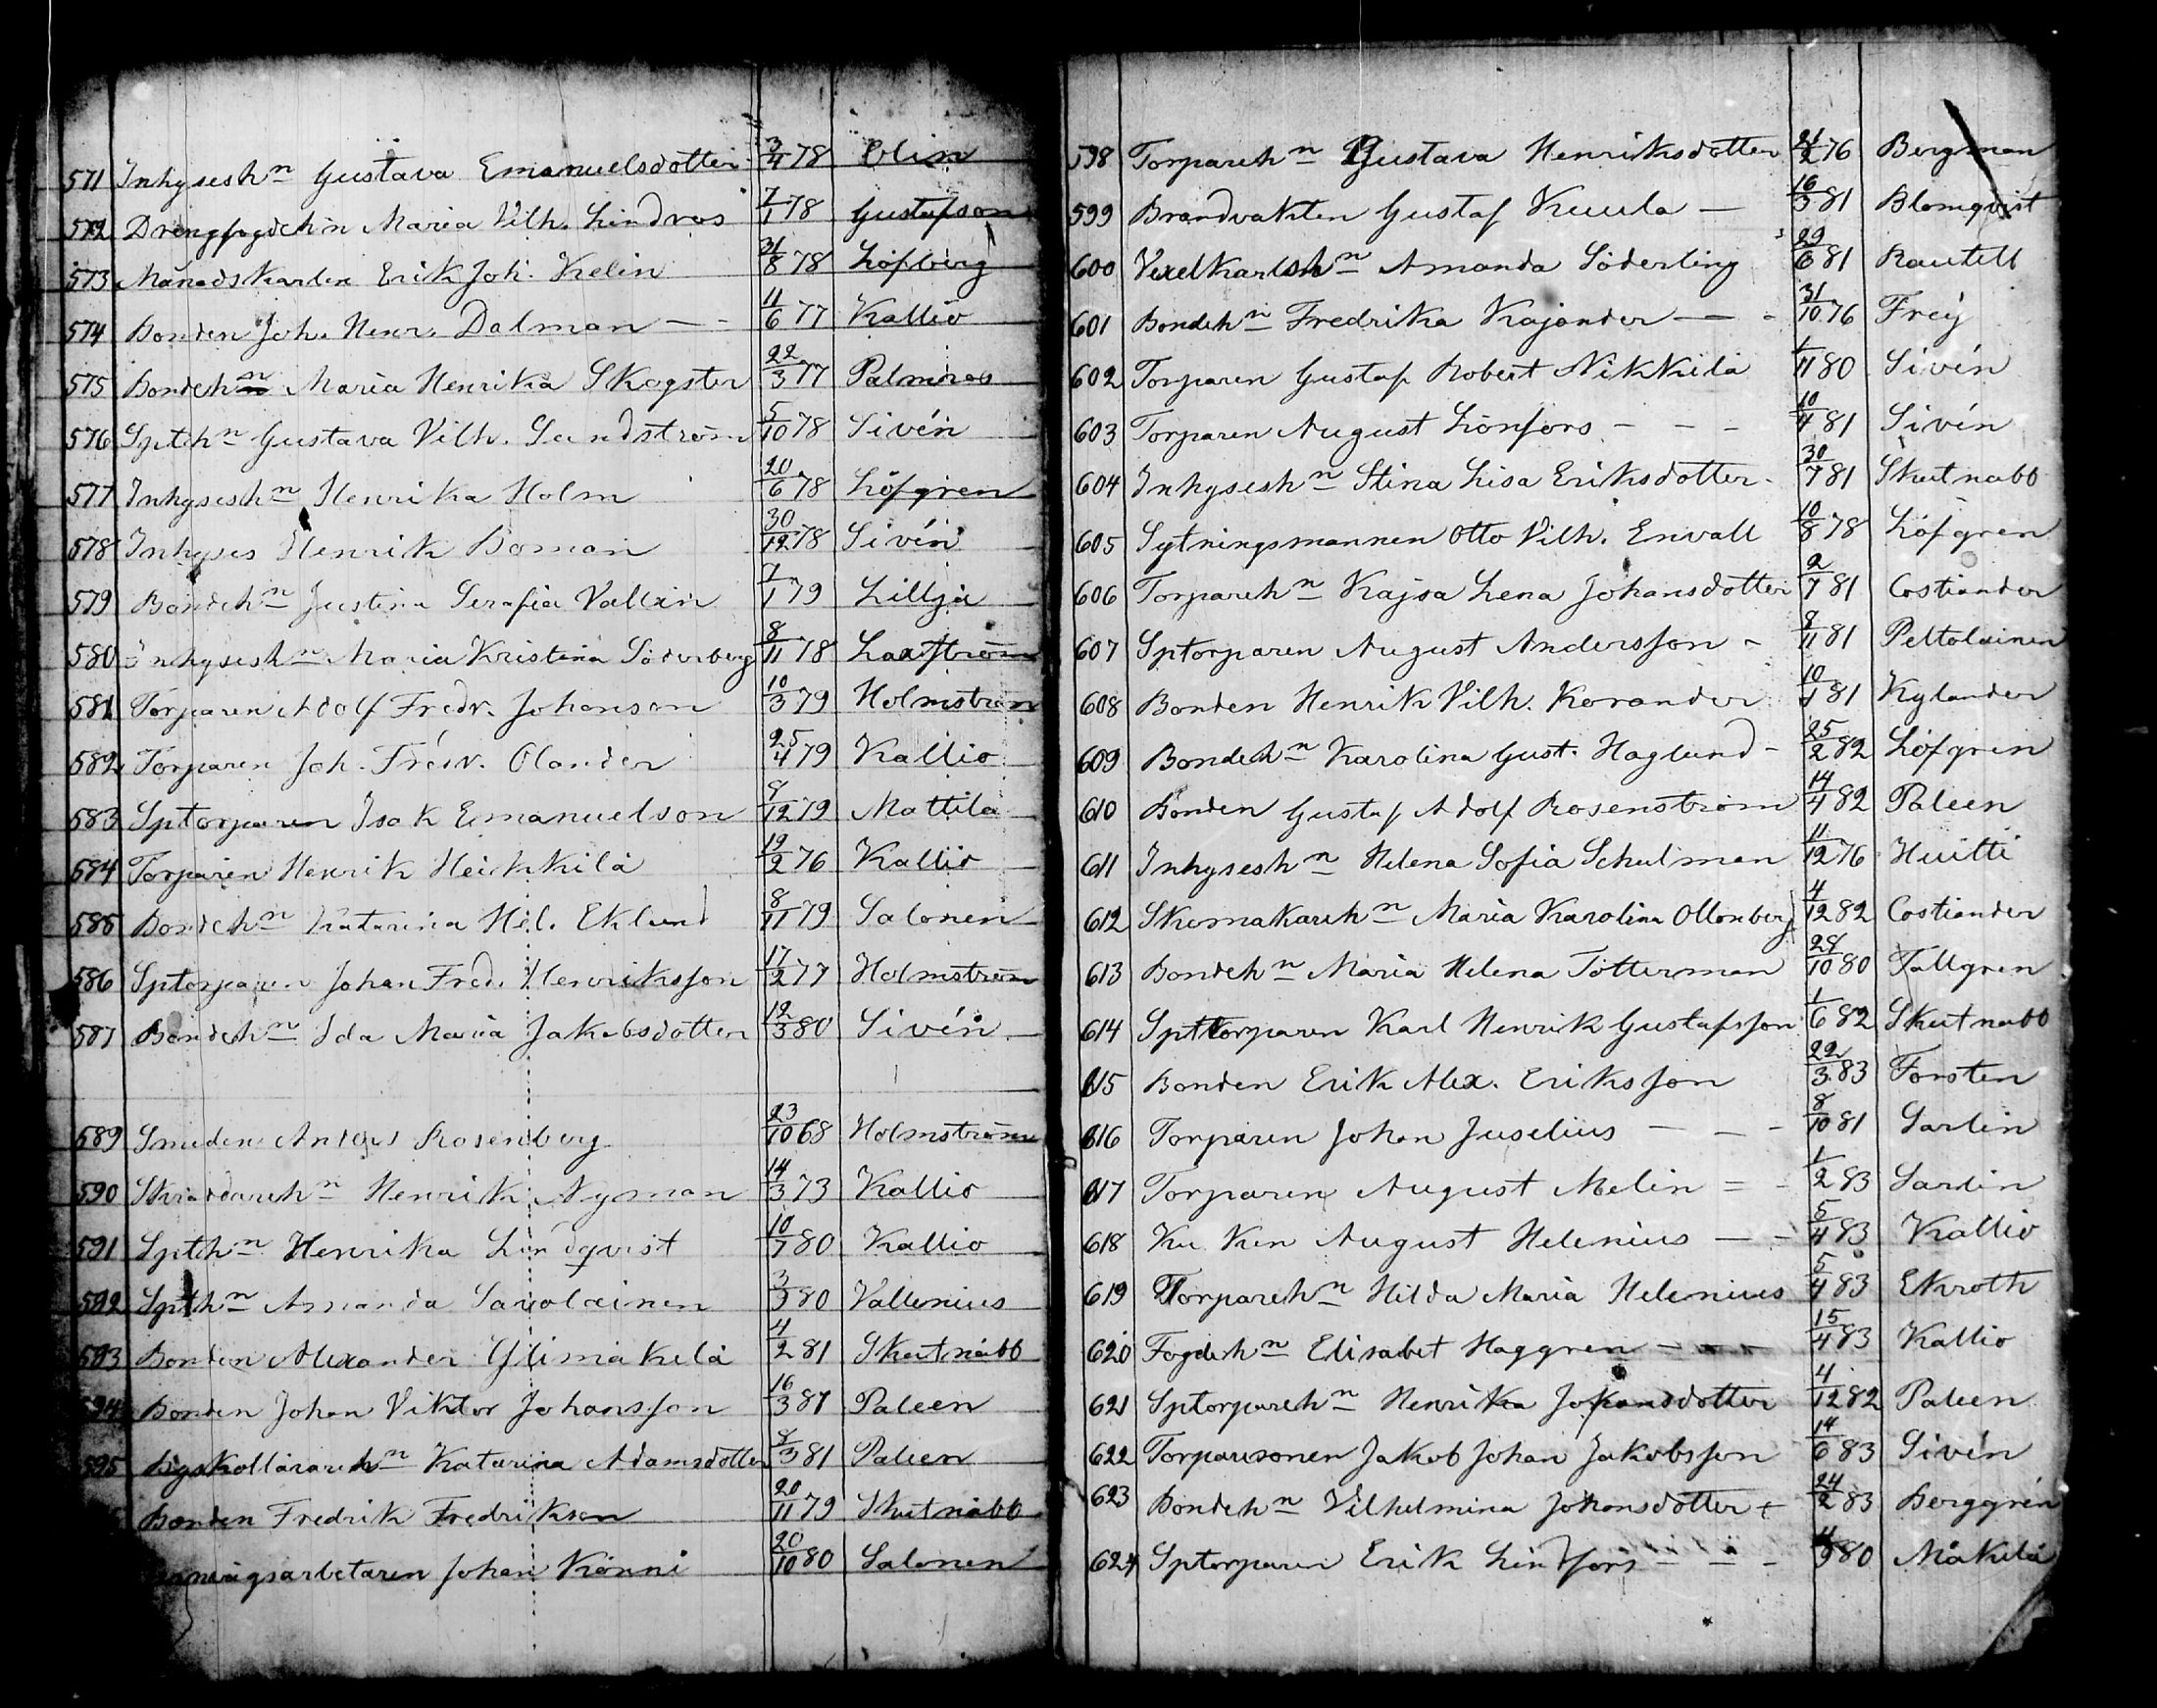 571 Inhyseshn Gustava Emanuelsdotter 3/4 78 Olin
572 Drengfogdehn Maria Vilh. Lindroos 7/1 78 Gustafson
573 Månadskarlen Erik Joh. Kelin 31/8 78 Löfberg
574 Bonden Joh. Henr. Dalman — - 11/6 77 Kallio
575 Bondehn Maria Henrika Skogster 22/3 77 Palmroos
576 Spthn Gustava Vilh. Sandström 5/10 78 Sivén
577 Inhyseshn Henrika Holm 20/6 78 Löfgren
578 Inhyses Henrik Boman 30/12 78 Sivén
579 Bondehn Justina Serafia Vallin 7/1 79 Lillja
580 Inhyseshn Maria Kristina Söderberg 8/11 78 Laxström
581 Torparen Adolf Fredr. Johanson 10/3 79 Holmström
582 Torparen Joh. Fredr. Olander 25/4 79 Kallio
583 Sptorparen Isak Emanuelson 9/12 79 Mattila
584 Torparen Henrik Heikkilä 19/2 76 Kallio
585 Bondehn Katarina Hel. Eklund 8/11 79 Salonen
586 Sptorparen Johan Fred. Henriksson 17/2 77 Holmström
587 Bondehn Ida Maria Jakobsdotter 12/3 80 Sivén
589 Smeden Anders Rosenberg 23/10 68 Holmström
590 Skräddarehn Henrik Nyman 14/3 73 Kallio
591 Spthn Henrika Lindqvist 10/7 80 Kallio
592 Spthn Amanda Savolainen 3/3 80 Vallenius
593 Bonden Alexander Ylimäkelä 4/2 81 Skutnabb
594 Bonden Johan Viktor Johansson 16/3 81 Paleen
595 Katarina Adamsdotter 8/3 81 Paleen
Bonden Fredrik Fredrikson 20/11 79 Skutnabb
Johan Könni 20/10 80 Salonen
598 Torparehn Gustava Henriksdotter 21/2 76 Bergman
599 Brandvakten Gustaf Kuula — 16/3 81 Blomqvist
600 Vexelkarlshn Amanda Söderling 29/6 81 Rautell
601 Bondehn Fredrika Kajander — — - 31/10 76 Frey
602 Torparen Gustaf Robert Nikkilä 1/11 80 Sivén
603 Torparen August Lönfors - - - 10/4 81 Sivén
604 Inhyseshn Stina Lisa Eriksdotter 30/7 81 Skutnabb
605 Sytningsmannen Otto Vilh. Envall 10/8 78 Löfgren
606 Torparehn Kajsa Lena Johansdotter 2/7 81 Costiander
607 Sptorparen August Andersson - 8/11 81 Peltolainen
608 Bonden Henrik Vilh. Korander 10/1 81 Kylander
609 Bondehn Karolina Gust. Haglund - 25/2 82 Löfgren
610 Bonden Gustaf Adolf Rosenström 14/4 82 Paleen
611 Inhyseshn Helena Sofia Schulman 11/12 76 Huitti
612 Skomakarehn Maria Karolina Ollonberg 4/12 82 Costiander
613 Bondehn Maria Helena Tötterman 28/10 80 Tallgren
614 Sptorparen Karl Henrik Gustafsson 1/6 82 Skutnabb
615 Bonden Erik Alex. Eriksson 22/3 83 Forsten
616 Torparen Johan Juselius — — - 8/10 81 Sarlin
617 Torparen August Melin = - 1/2 83 Sarlin
618 August Helenius — - 5/4 83 Kallio
619 Torparehn Hilda Maria Helenius 5/4 83 Ekroth
620 Fogdehn Elisabet Haggren - - - 15/4 83 Kallio
621 Sptorparehn Henrika Johansdotter 4/12 82 Paleen
622 Torparesonen Jakob Johan Jakobsson 14/6 83 Sivén
623 Bondehn Vilhelmina Johansdotter + 24/2 83 Berggrén
624 Sptorparen Erik Lindfors - - - 80 Mäkelä